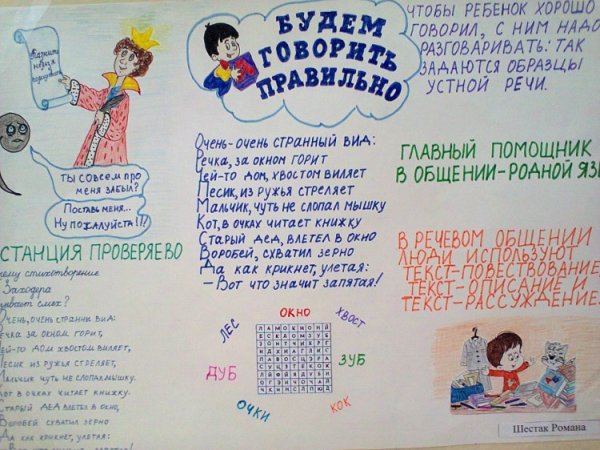 Казнить
нельзя
Ты совсем про
меня забыл?
Поставь меня...
Ну пожалуйста!!!
СТАНЦИЯ ПРОВЕРЯЕВО
стихотворение
Заходера
смех?
Очень, очень странный вид:
Речка за окном горит,
Чей-то дом хвостом виляет,
Песик из ружья стреляет,
Мальчик чуть не слопал мышку.
Кот в очках читает книжку.
Старый дед влетел в окно,
Воробей схватил зерно
Да как крикнет, улетая:
БУДЕМ
ГОВОРИТЬ
ПРАВИЛЬНО
Очень-очень странный вид:
Речка, за окном горит
Чей-то дом, хвостом виляет
Песик, из ружья стреляет
Мальчик, чуть не слопал мышку
Кот, в очках читает книжку
Старый дед, влетел в окно
Воробей, схватил зерно
Да как крикнет, улетая:
- Вот что значит запятая!
ОКНО
ЛЕС
ХВОСТ
ДУБ
ЗУБ
ОЧКИ
КОК
ЧТОБЫ РЕБЕНОК ХОРОШО
ГОВОРИЛ, С НИМ НАДО
РАЗГОВАРИВАТЬ: ТАК
ЗАДАЮТСЯ ОБРАЗЦЫ
УСТНОЙ РЕЧИ.
ГЛАВНЫЙ ПОМОЩНИК
В ОБЩЕНИИ-РОДНОЙ ЯЗ
В РЕЧЕВОМ ОБЩЕНИИ
ЛЮДИ ИСПОЛЬЗУЮТ
ТЕКСТ-ПОВЕСТВОВАНИЕ,
ТЕКСТ-ОПИСАНИЕ И
ТЕКСТ-РАССУЖДЕНИЕ.
Шестак Романа